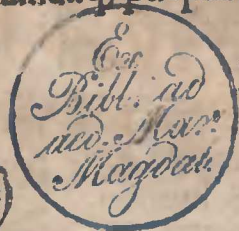 Ex
Bibl: ad
aed. Mar:
Magdal.